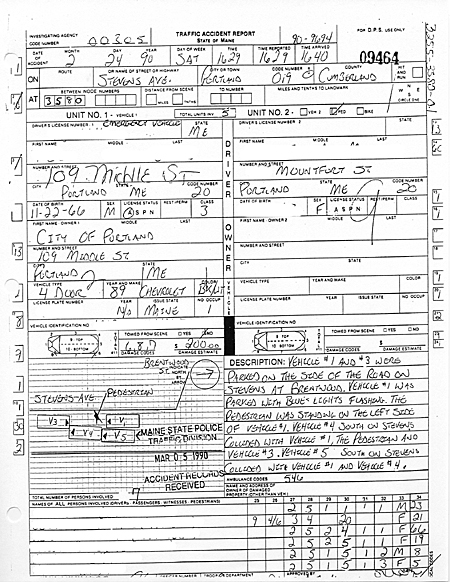 INVESTIGATING AGENCY CODE NUMBER 00305
TRAFFIC ACCIDENT REPORT
STATE OF MAINE
90-9694
FOR D.P.S. USE ONLY
MONTH DAY YEAR DAY OF WEEK TIME TIME REPORTED TIME ARRIVED
2 24 90 SAT 1629 1629 1640
09464
ROUTE OR NAME OF STREET OR HIGHWAY CITY OR TOWN CODE NUMBER COUNTY HIT AND RUN
ON STEVENS AVE. PORTLAND 019 CUMBERLAND
BETWEEN NODE NUMBERS DISTANCE FROM SCENE MILES AND TENTHS TO LANDMARK
AT 3580 MILES TENTHS
CIRCLE ONE
UNIT NO. 1 - VEHICLE 1 TOTAL UNITS INV. 5 UNIT NO. 2 - VEH 2 PED BIKE
DRIVER'S LICENSE NUMBER 1 EMERGENCY VEHICLE STATE ME
DRIVER'S LICENSE NUMBER 2 STATE
FIRST NAME MIDDLE LAST
NUMBER AND STREET
109 MIDDLE ST MOUNTFORT ST
CITY STATE CODE NUMBER
PORTLAND ME 20 PORTLAND ME 20
DATE OF BIRTH SEX LICENSE STATUS RESTR/PERM CLASS
11-22-66 M A S P N 3 F A S P N
DRIVER
FIRST NAME - OWNER 1 MIDDLE LAST FIRST NAME - OWNER 2 MIDDLE LAST
CITY OF PORTLAND
NUMBER AND STREET
109 MIDDLE ST.
OWNER
CITY STATE
PORTLAND ME
VEHICLE TYPE YEAR AND MAKE COLOR
4 DOOR 89 CHEVROLET
LICENSE PLATE NUMBER YEAR ISSUE STATE NO. OCCUP
MAINE 1
VEHICLE
VEHICLE IDENTIFICATION NO
TOWED FROM SCENE YES NO
9 TOP 10 BOTTOM
6,8,7 $ 200.00
DAMAGE CODES DAMAGE ESTIMATE
BRENTWOOD ST.
INDICATE NORTH BY ARROW
STEVENS AVE PEDESTRIAN
V3 V1
V4 V5
MAINE STATE POLICE
TRAFFIC DIVISION
MAR 05 1990
ACCIDENT RECORDS
RECEIVED
DESCRIPTION: VEHICLE #1 AND #3 WERE
PARKED ON THE SIDE OF THE ROAD ON
STEVENS AT BRENTWOOD, VEHICLE #1 WAS
PARKED WITH BLUE LIGHTS FLASHING. THE
PEDESTRIAN WAS STANDING ON THE LEFT SIDE
OF VEHICLE #1. VEHICLE #4 SOUTH ON STEVENS
COLLIDED WITH VEHICLE #1, THE PEDESTRIAN AND
VEHICLE #3. VEHICLE #5 SOUTH ON STEVENS
COLLIDED WITH VEHICLE #1 AND VEHICLE #4.
AMBULANCE CODES 546
TOTAL NUMBER OF PERSONS INVOLVED 7
NAME AND ADDRESS OF OWNER OF DAMAGED PROPERTY (OTHER THAN VEH.)
NAMES OF ALL PERSONS INVOLVED (DRIVERS, PASSENGERS, WITNESSES, PEDESTRIANS)
25 26 27 28 29 30 31 32 33 34
2 5 1 1 1 M 23
9 4/6 3 4 20 F 21
2 5 2 4 1 1 F 66
2 5 2 5 1 1 F 19
2 5 1 5 1 2 M 8
2 5 1 5 1 3 F 5